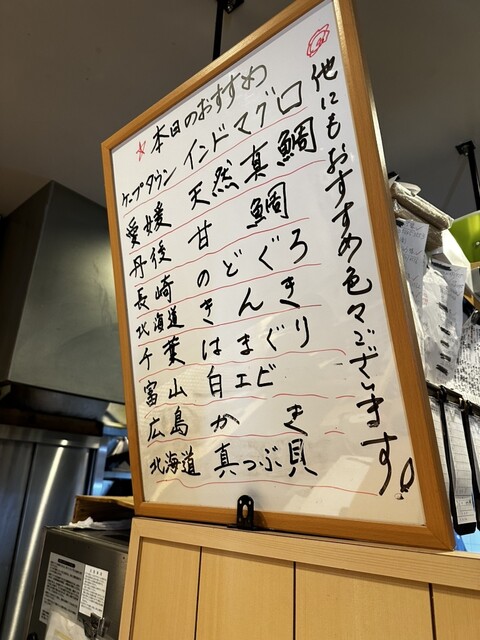 本日のおすすめ
ケープタウン インドマグロ
愛媛 天然真鯛
丹後 甘鯛
長崎 のどぐろ
北海道 きんき
千葉 はまぐり
富山 白エビ
広島 かき
北海道 真つぶ貝
他にもおすすめ色々ございます。